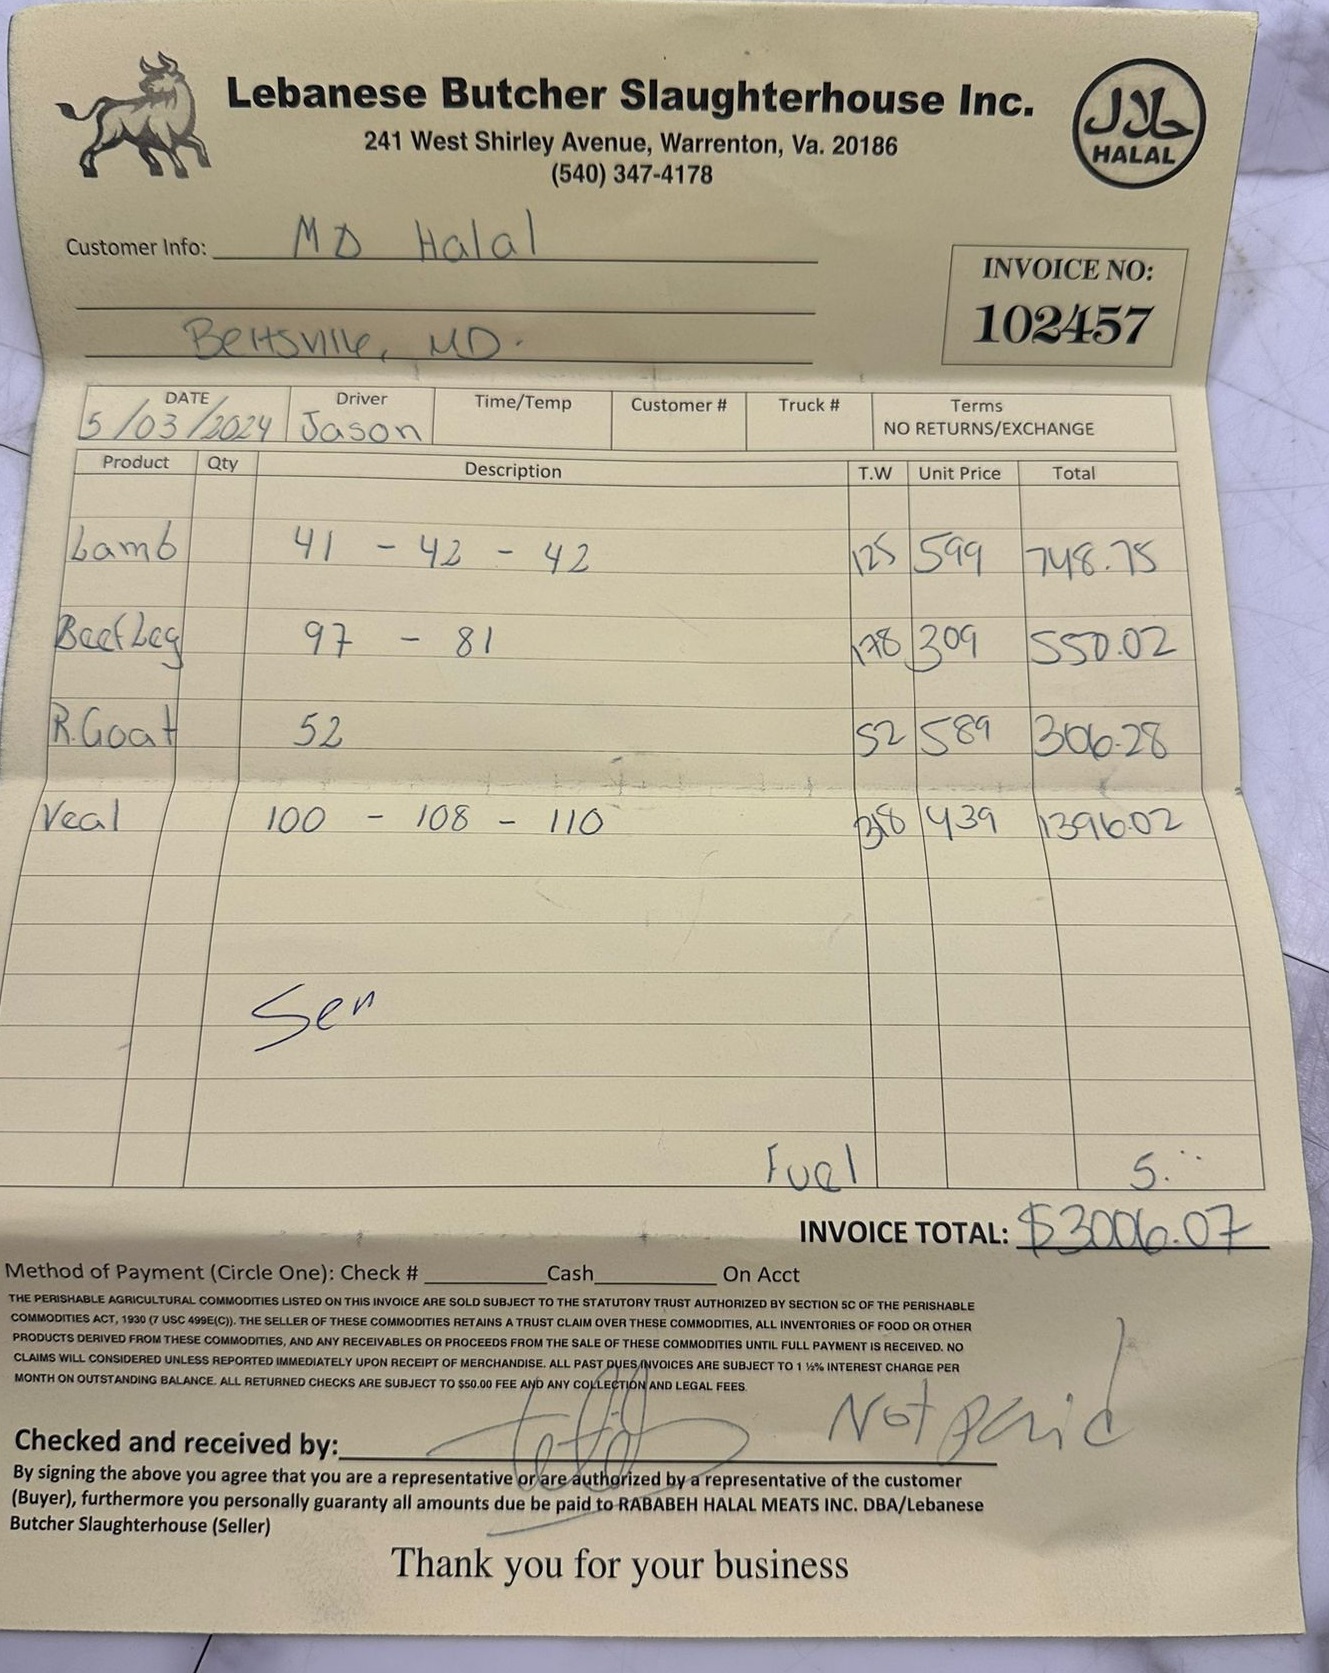 Lebanese Butcher Slaughterhouse Inc.
241 West Shirley Avenue, Warrenton, Va. 20186
(540) 347-4178
حلال
HALAL
Customer Info: MD Halal
Beltsville, MD.
INVOICE NO:
102457
DATE Driver Time/Temp Customer # Truck # Terms
5/03/2024 Jason NO RETURNS/EXCHANGE
Product Qty Description T.W Unit Price Total
Lamb 41 - 42 - 42 125 599 748.75
Beef Leg 97 - 81 178 309 550.02
R.Goat 52 52 589 306.28
Veal 100 - 108 - 110 318 439 1396.02
Fuel 5.
INVOICE TOTAL: $3006.07
Method of Payment (Circle One): Check # Cash On Acct
THE PERISHABLE AGRICULTURAL COMMODITIES LISTED ON THIS INVOICE ARE SOLD SUBJECT TO THE STATUTORY TRUST AUTHORIZED BY SECTION 5C OF THE PERISHABLE
COMMODITIES ACT, 1930 (7 USC 499E(C)). THE SELLER OF THESE COMMODITIES RETAINS A TRUST CLAIM OVER THESE COMMODITIES, ALL INVENTORIES OF FOOD OR OTHER
PRODUCTS DERIVED FROM THESE COMMODITIES, AND ANY RECEIVABLES OR PROCEEDS FROM THE SALE OF THESE COMMODITIES UNTIL FULL PAYMENT IS RECEIVED. NO
CLAIMS WILL CONSIDERED UNLESS REPORTED IMMEDIATELY UPON RECEIPT OF MERCHANDISE. ALL PAST DUES INVOICES ARE SUBJECT TO 1 ½% INTEREST CHARGE PER
MONTH ON OUTSTANDING BALANCE. ALL RETURNED CHECKS ARE SUBJECT TO $50.00 FEE AND ANY COLLECTION AND LEGAL FEES
Not paid
Checked and received by:
By signing the above you agree that you are a representative or are authorized by a representative of the customer
(Buyer), furthermore you personally guaranty all amounts due be paid to RABABEH HALAL MEATS INC. DBA/Lebanese
Butcher Slaughterhouse (Seller)
Thank you for your business